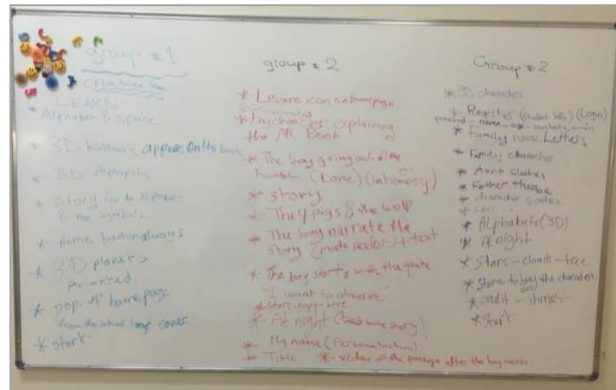 group #1
LEARN
Alphabet & space
* 3D buttons appears on the book
* 3D Alphapets
* Story for the alphabets
& the symbols.
* Home button always
* 3D planets
animated
* pop-up home page
from the actual book cover
* start
group #2
* Lessons icon on homepage
explaining
the AR Book
* The boy going out of the
house (Lane)
* story
* The 4 pigs & the wolf
* The boy narrate the
story (male ) + text
* The boy starts with the quote
"I want to observe"
* At night (bed time story)
* My name (Personalization)
* Title * of the passage after the boy
Group #2
* 3D character
* Register (Login)
* Family name Letters
* Family character
* Aunt clothes
* Father thobe
* character clothes
* Alphabets (3D)
* At night
* Stars - clouds - tree
* Store to buy the character
* credit -
* start